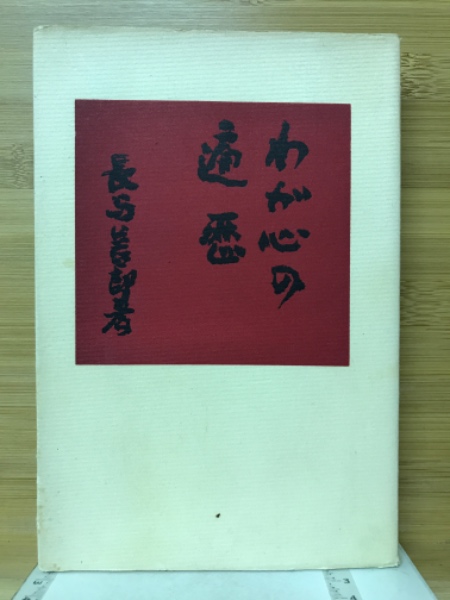 わが心の
遍歴
長与善郎著